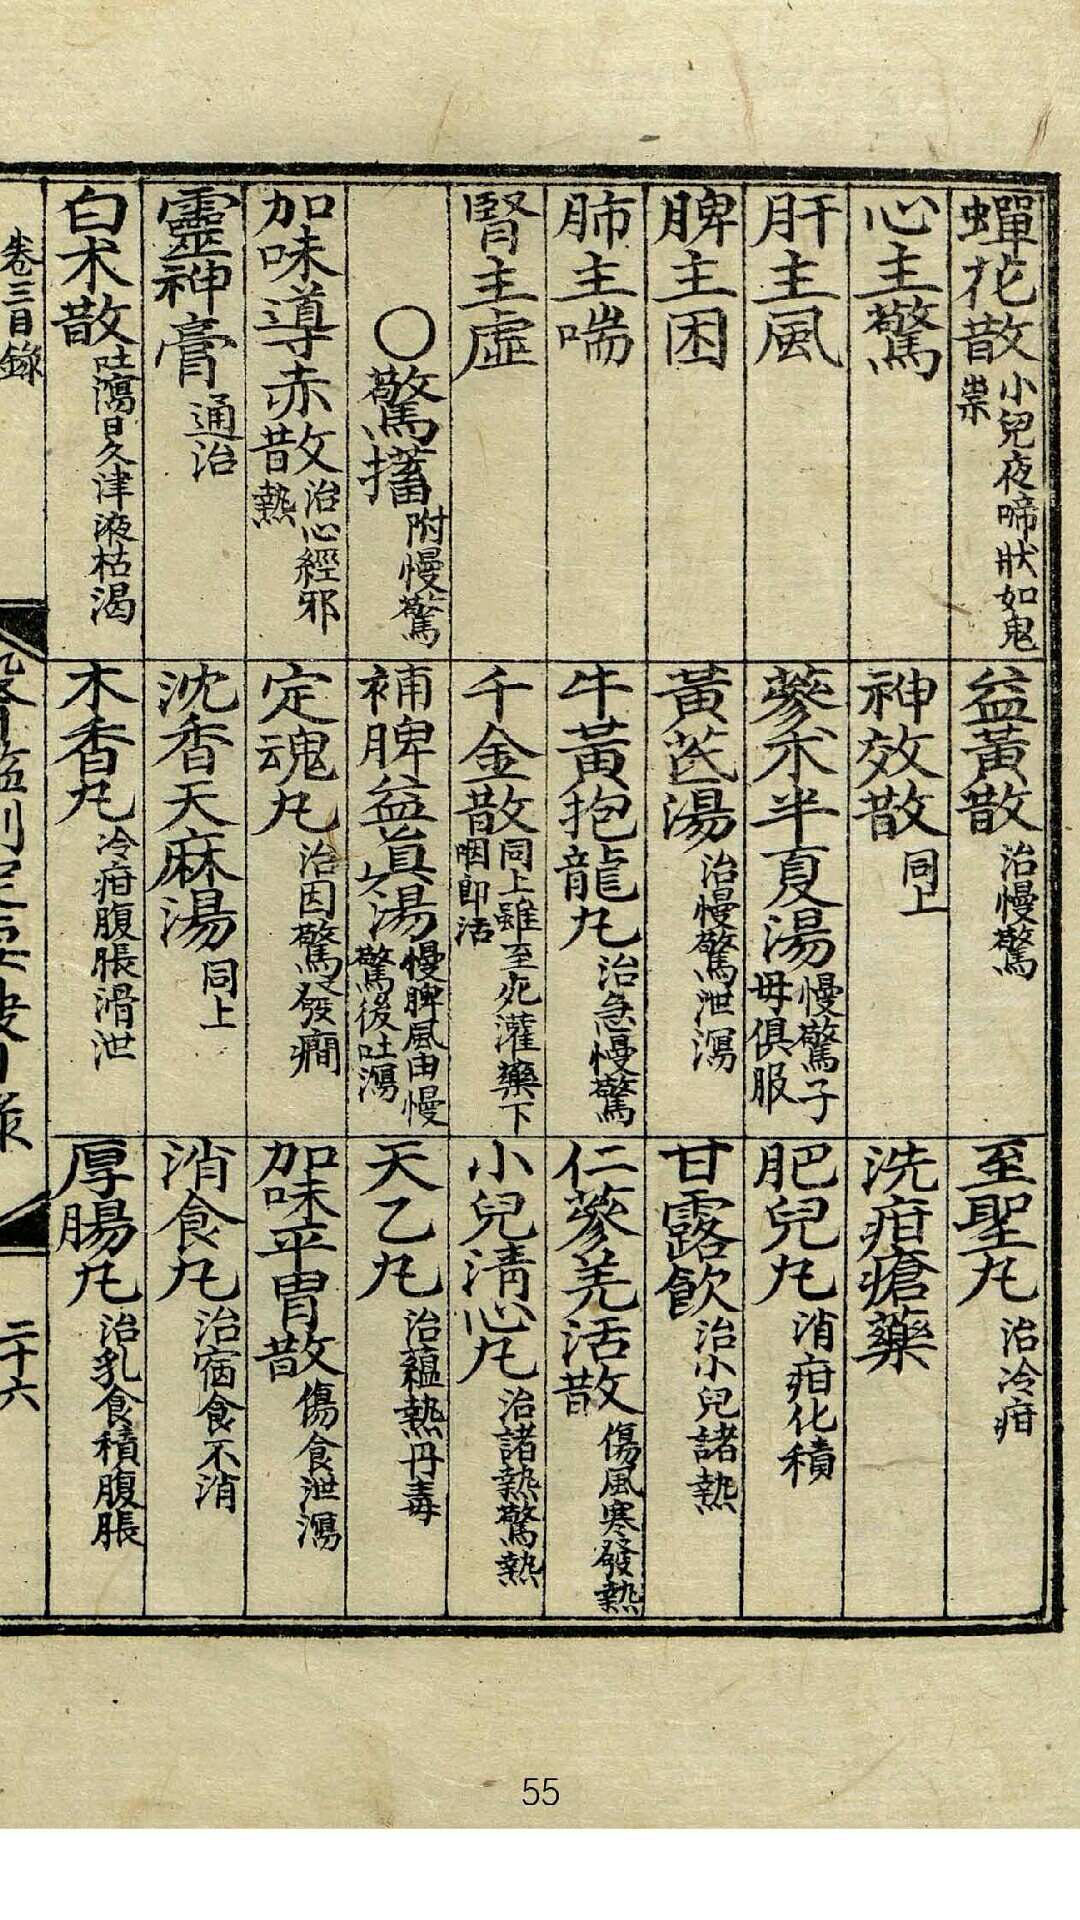 蟬花散 小兒夜啼狀如鬼祟
心主驚
肝主風
脾主困
肺主喘
腎主虛
○驚搐 附慢驚
加味導赤散 治心經邪熱
靈神膏 通治
白术散 吐瀉日久津液枯渴
益黃散 治慢驚
神效散 同上
蔘朮半夏湯 慢驚子母俱服
黃芪湯 治慢驚泄瀉
牛黃抱龍丸 治急慢驚
千金散 同上雖至死灌藥下咽卽活
補脾益眞湯 慢脾風由慢驚後吐瀉
定魂丸 治因驚發癎
沈香天麻湯 同上
木香丸 冷疳腹脹滑泄
至聖丸 治冷疳
洗疳瘡藥
肥兒丸 消疳化積
甘露飮 治小兒諸熱
仁蔘羌活散 傷風寒發熱
小兒淸心丸 治諸熱驚熱
天乙丸 治蘊熱丹毒
加味平胃散 傷食泄瀉
消食丸 治宿食不消
厚腸丸 治乳食積腹脹
卷三目錄
二十六
55